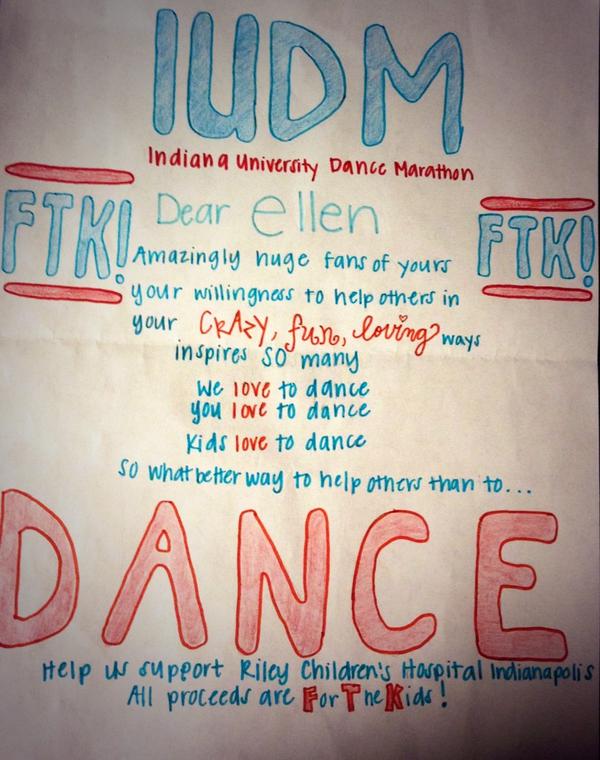 IUDM
Indiana University Dance Marathon
FTK!
FTK!
Dear ellen
Amazingly huge fans of yours
your willingness to help others in
your CRAZy, fun, loving ways
inspires so many
We love to dance
you love to dance
Kids love to dance
so what better way to help others than to...
DANCE
Help us support Riley Children's Hospital Indianapolis
All proceeds are For The Kids!